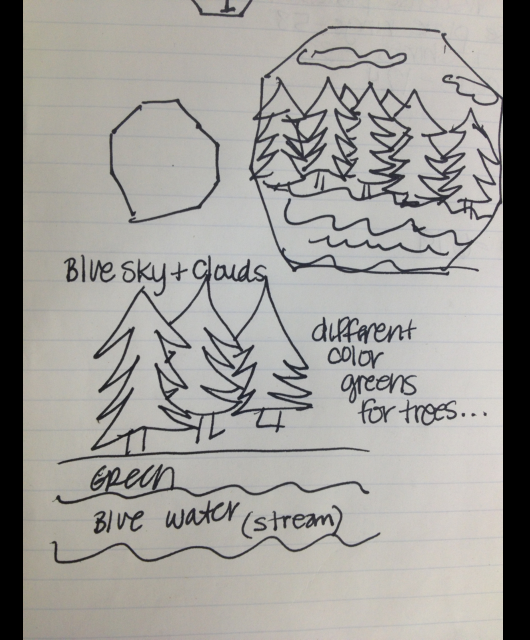 1
Blue sky + clouds
different
color
greens
for trees...
Green
Blue water (stream)